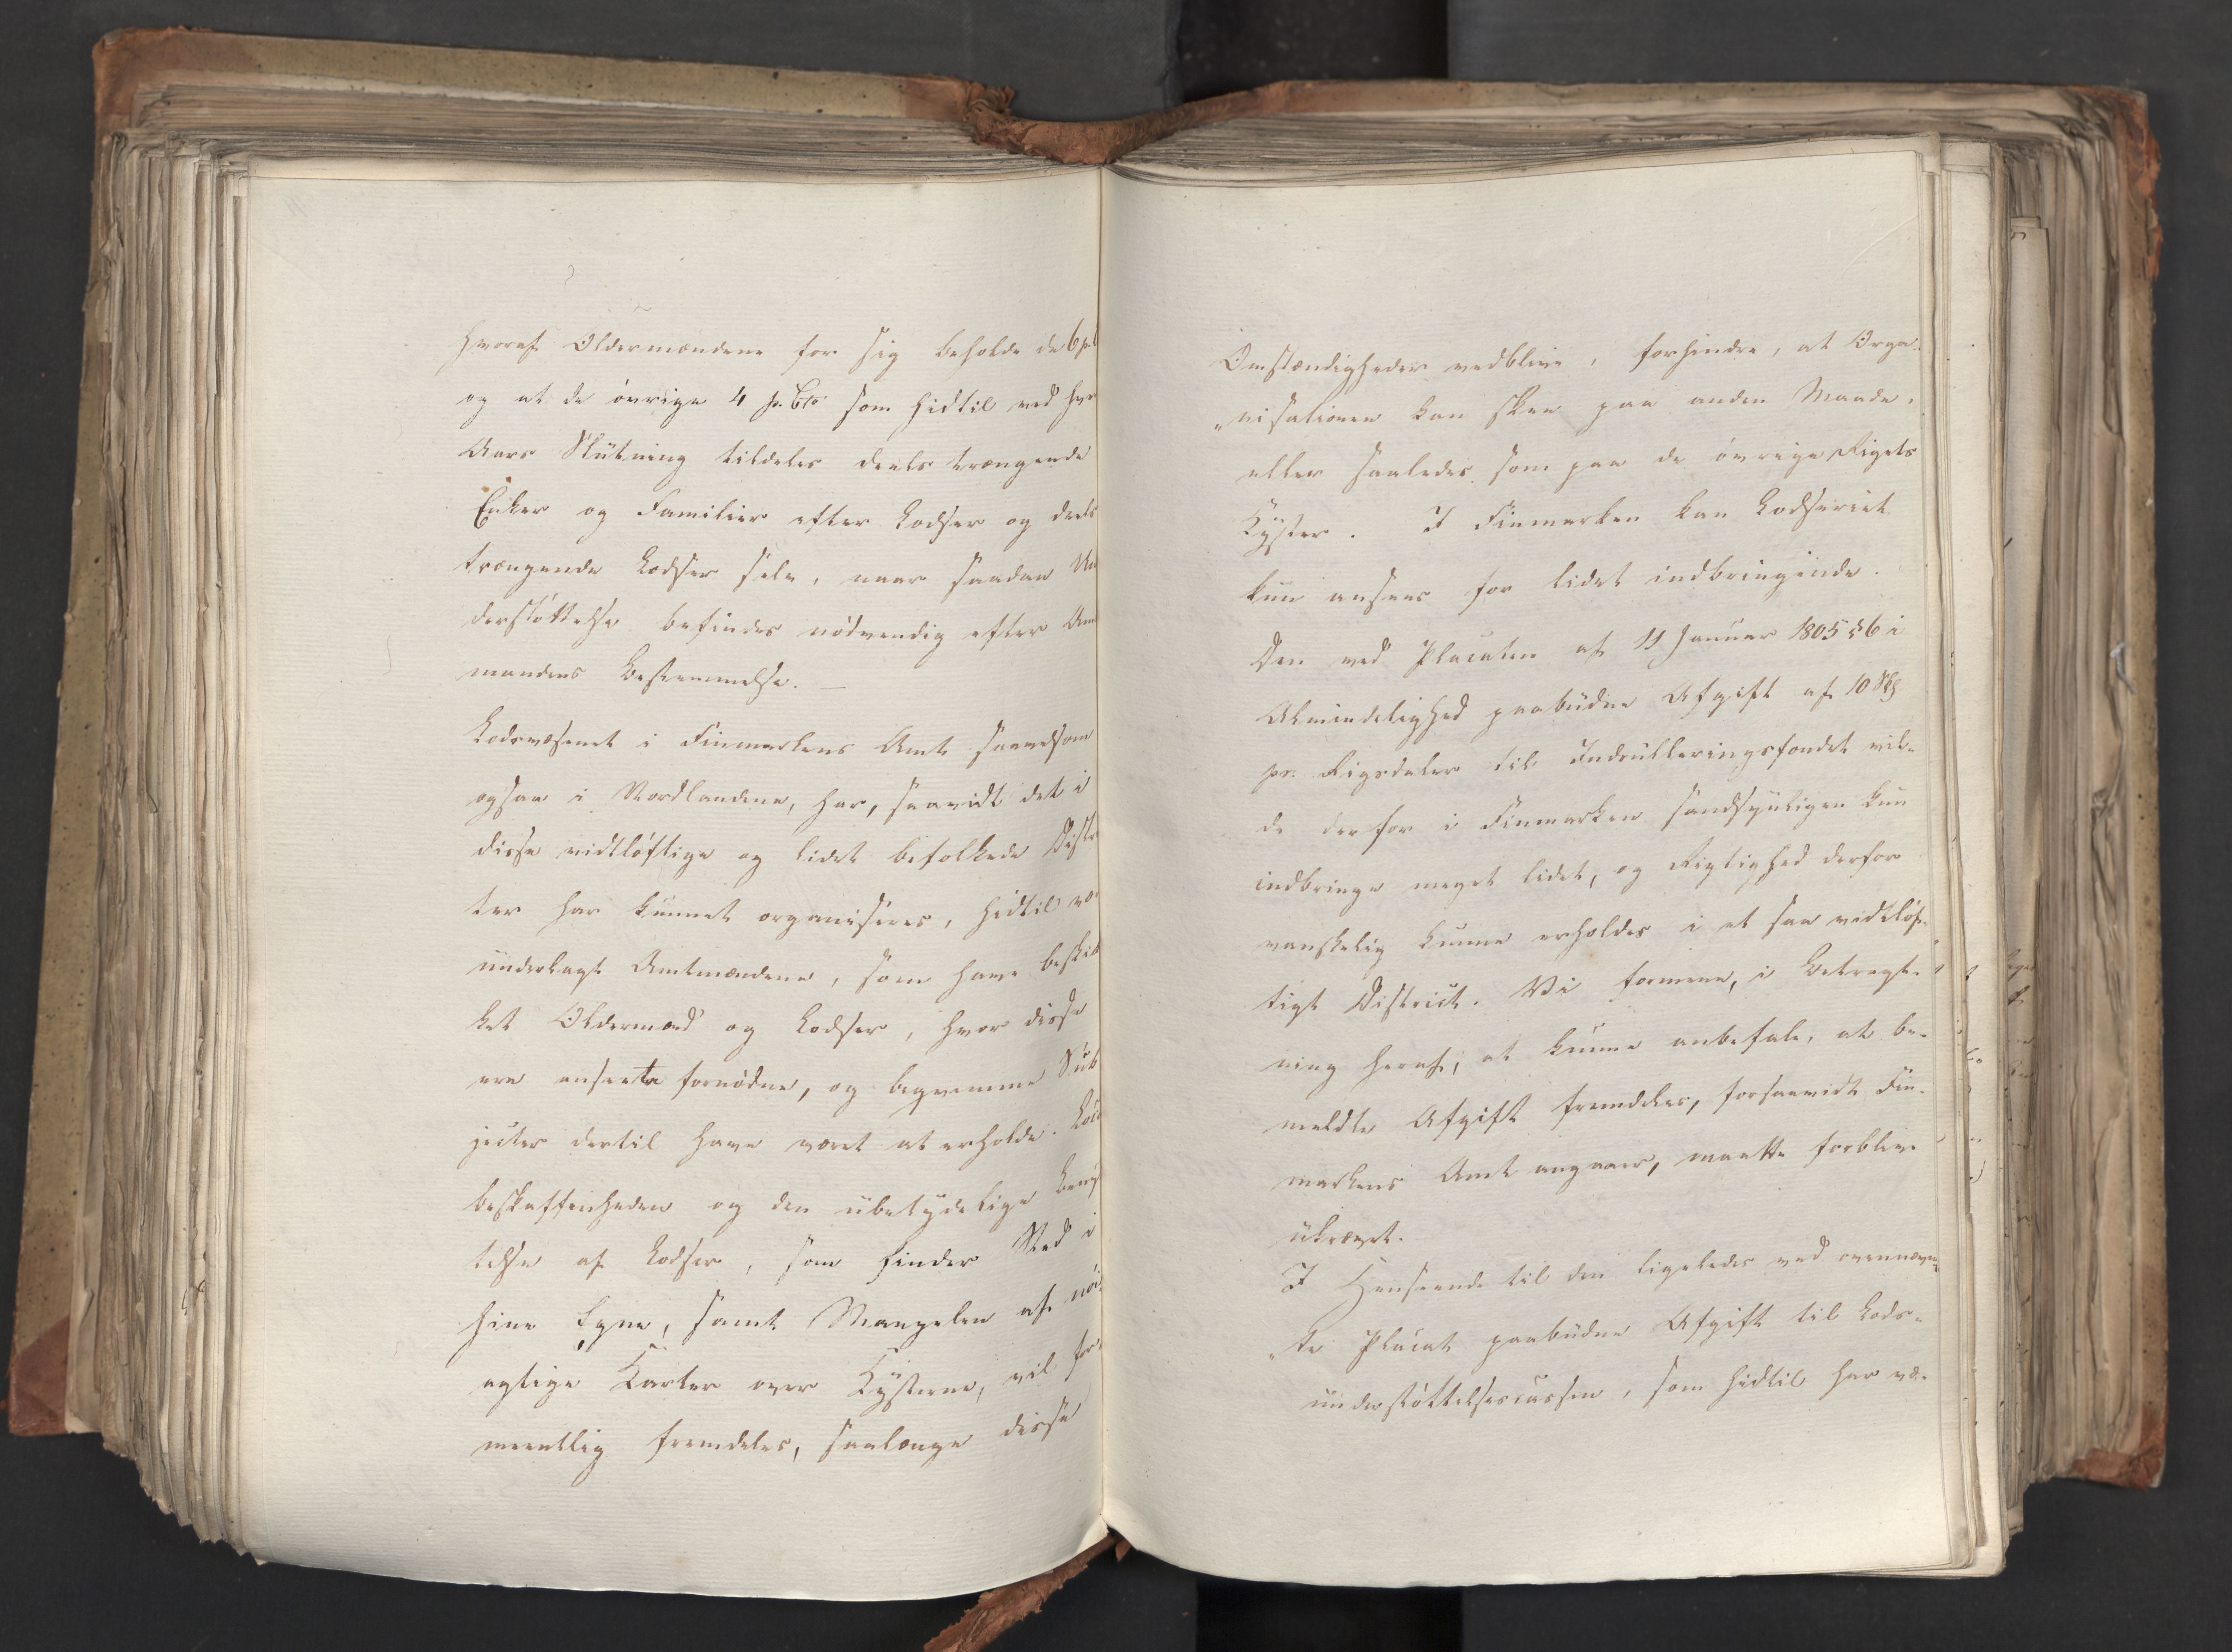 hvoraf Oldermændene for sig beholde de 6 p.C
og at de øvrige 4 p. Cto som hidtil ved hve
Aars Slutning tildeles deels trængende
Enker og Familier efter Lodser og deels
trængende Lodser selv, naar saadan Un
derstøttelse befindes nødvendig efter Amt
mandens Bestemmelse. —
Lodsvæsenet i Finmarkens Amt saavelsom
ogsaa i Nordlandene, har, saavidt det i
disse vidtløftige og lidet befolkede Distr
ter har kunnet organiseres, hidtil væ-
underlagt Amtmændene, som have beskik
ket Oldermænd og Lodser, hvor disse
ere anseete fornødne, og beqvemme Sub
jecter dertil have været at erholde. Local
beskaffenheden og den ubetydelige Beny
telse af Lodser, som finder Sted i
hine Egne, samt Mangelen af nøi-
agtige Karter over Kysterne, vil for-
meentlig fremdeles, saalænge disse
Omstændigheder vedblive, forhindre, at Orga-
„nisationen kan skee paa anden Maade,
eller saaledes som paa de øvrige Rigets
Kyster. I Finmarken kan Lodseriet
kun ansees for lidet indbringende.
Den ved Placaten af 11 Januar 1805 § 6 i
Almindelighed paabudne Afgift af 10 Skg
pr. Rigsdaler til Indrulleringsfondet vil-
de derfor i Finmarken sandsynligen kun
indbringe meget lidet, og Rigtighed derfor
vanskelig kunne erholdes i et saa vidtløf-
tigt District. Vi formene, i Betragt-
ning heraf, at kunne anbefale, at be-
meldte Afgift fremdeles, forsaavidt Fin-
markens Amt angaaer, maatte forblive
ukrævet.
I Henseende til den ligeledes ved ovennævn-
„te Placat paabudne Afgift til Lods-
understøttelsescassen, som hidtil har væ-